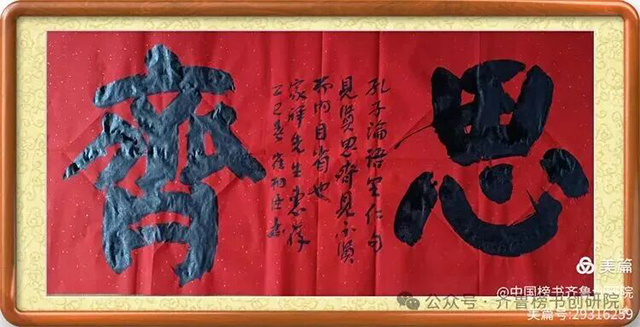 思
孔子論語里仁句
見賢思齊見不賢
而內自省也
家祥先生惠存
乙巳春崔書
齊
美篇
@中国榜书齐鲁创研院
公众号 · 齐鲁榜书创研院
美篇号:29316259